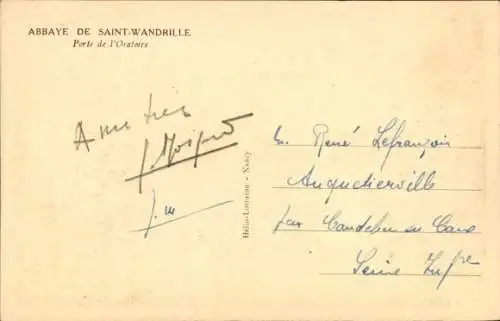 ABBAYE DE SAINT-WANDRILLE
Porte de l'Oratoire
Amitiés
Hélio-Lorraine - Nancy
M. René Lefrançois
Anquetierville
par Caudebec en Caux
Seine Infre